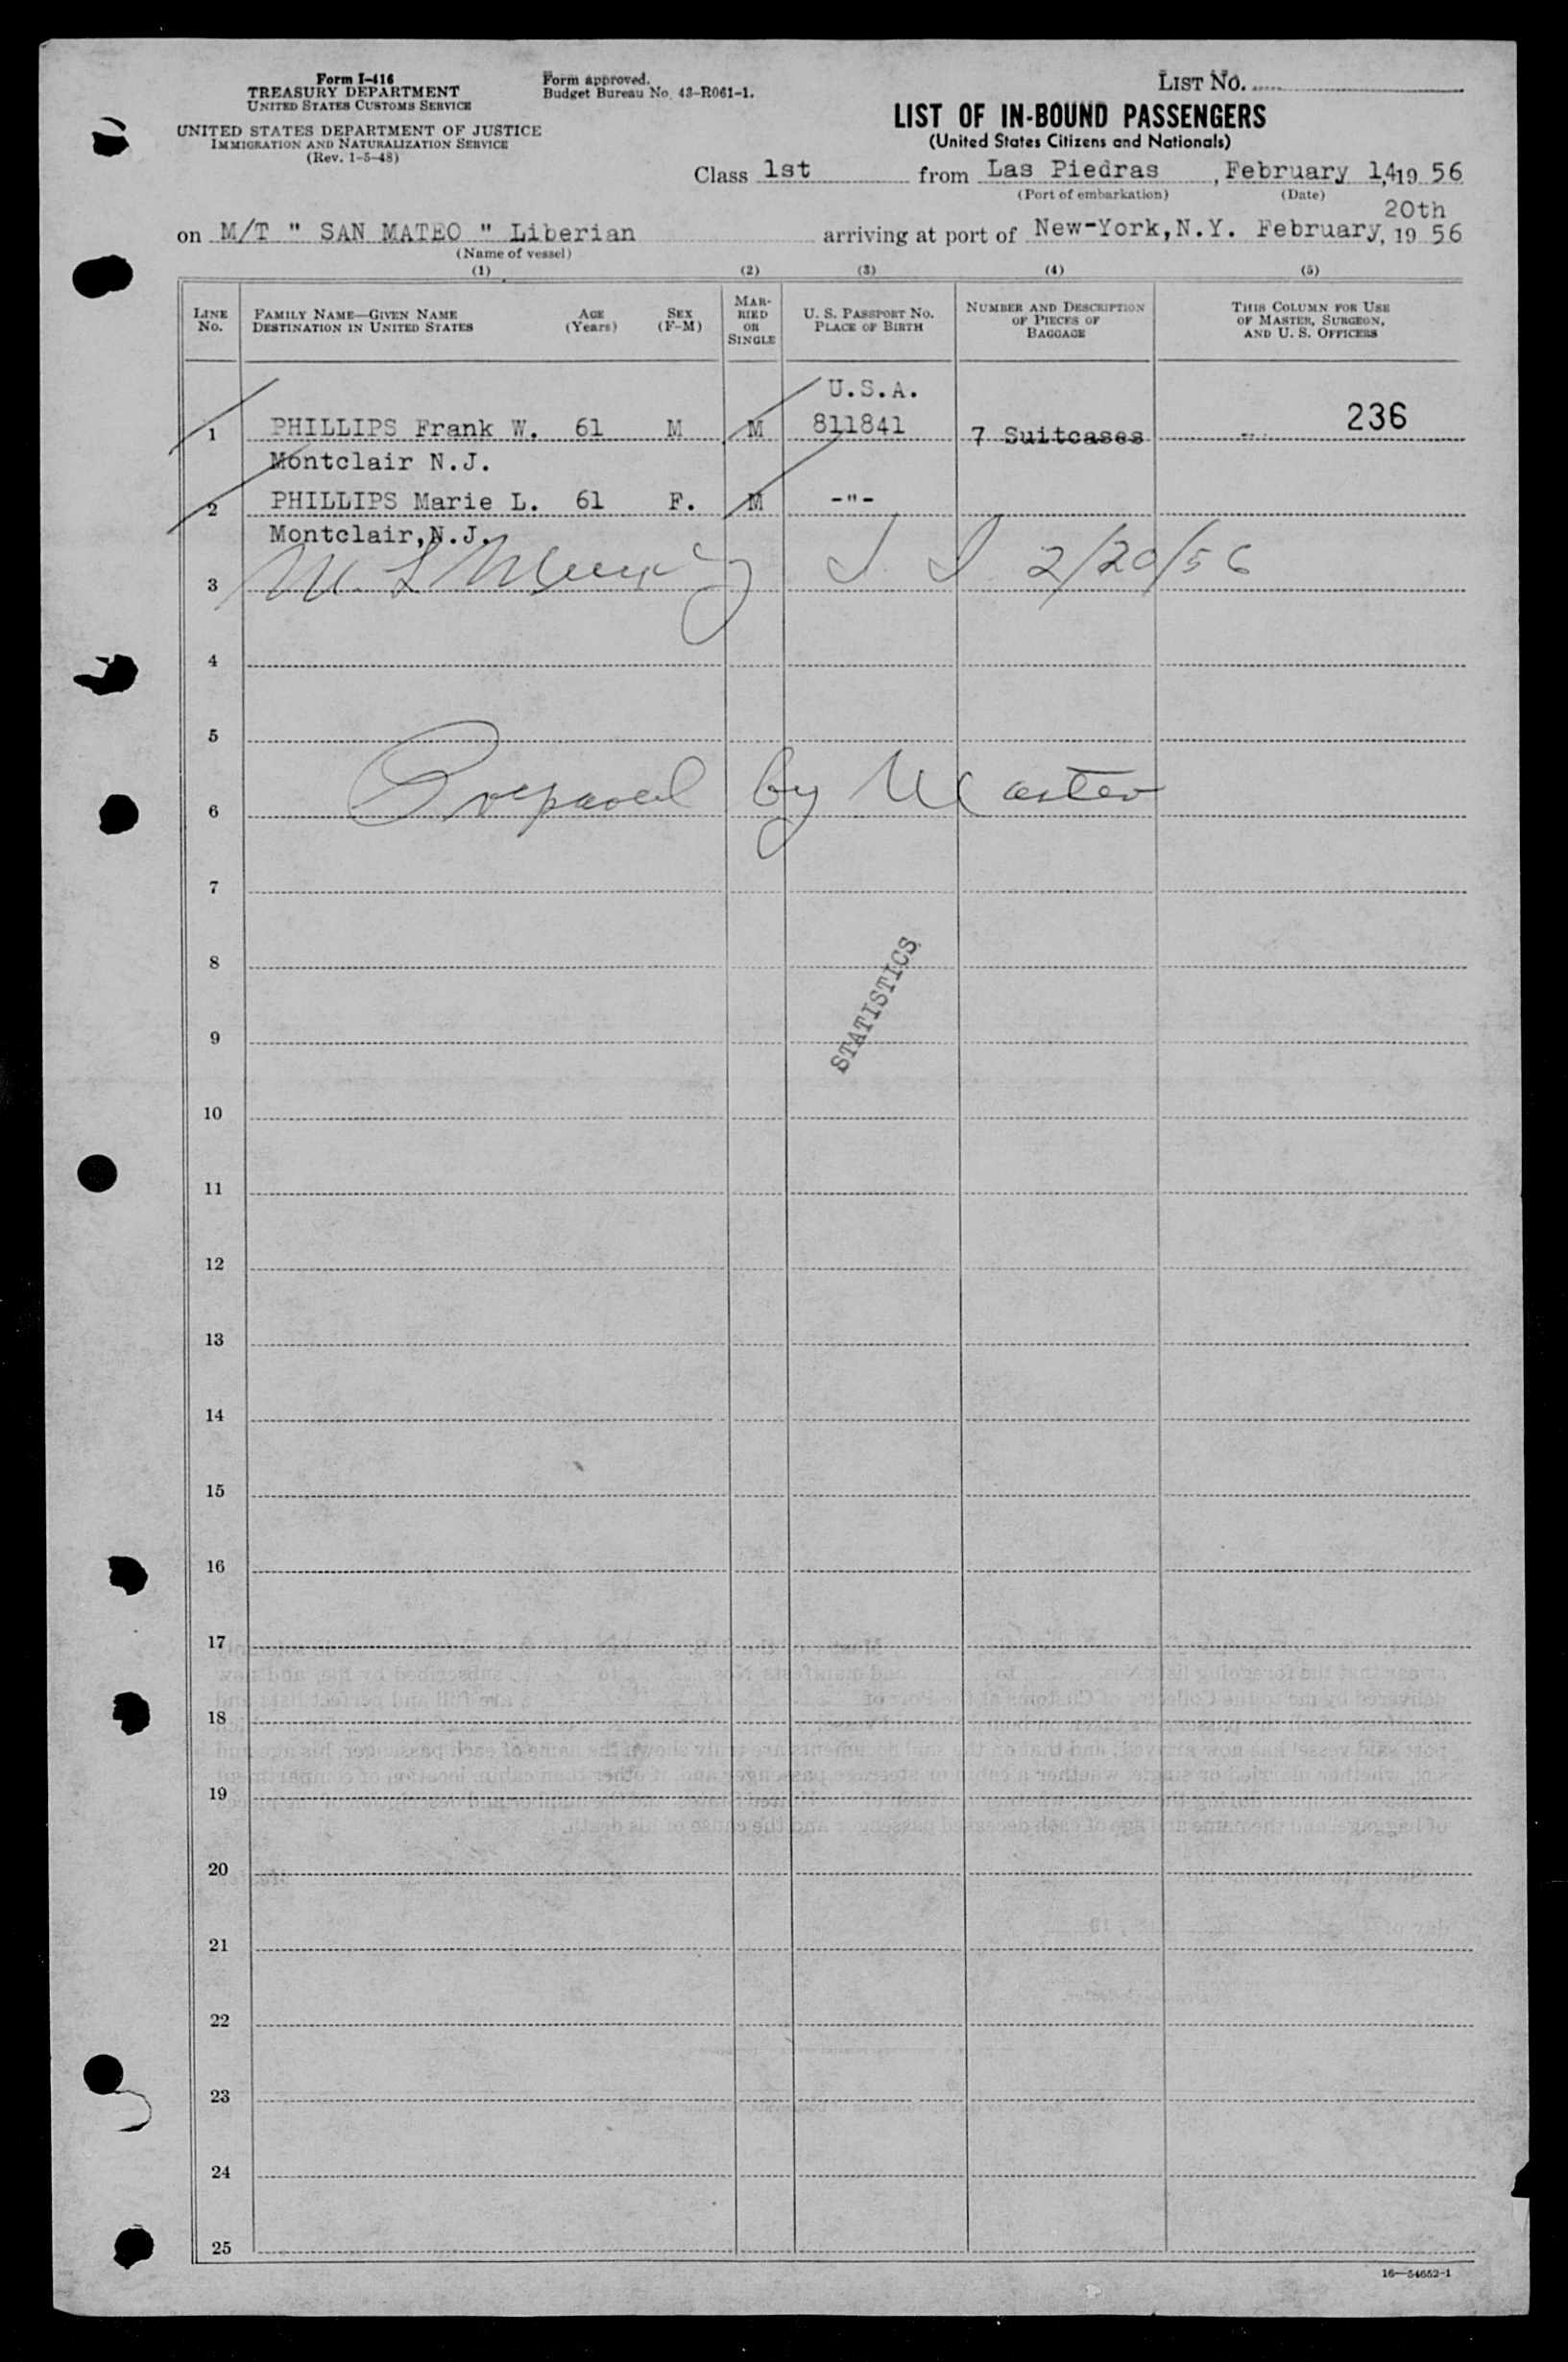 Form I-416
TREASURY DEPARTMENT
UNITED STATES CUSTOMS SERVICE
UNITED STATES DEPARTMENT OF JUSTICE
IMMIGRATION AND NATURALIZATION SERVICE
(Rev. 1-5-48)
Form approved.
Budget Bureau No. 43-R061-1.
LIST NO.
LIST OF IN-BOUND PASSENGERS
(United States Citizens and Nationals)
Class 1st from Las Piedras, February 14,19 56
(Port of embarkation) (Date)
20th
on M/T " SAN MATEO " Liberian arriving at port of New-York,N.Y. February, 19 56
(Name of vessel)
(1) (2) (3) (4) (5)
LINE NO. FAMILY NAME—GIVEN NAME DESTINATION IN UNITED STATES AGE (Years) SEX (F-M) MARRIED OR SINGLE U. S. PASSPORT NO. PLACE OF BIRTH NUMBER AND DESCRIPTION OF PIECES OF BAGGAGE THIS COLUMN FOR USE OF MASTER, SURGEON, AND U. S. OFFICERS
U.S.A.
1 PHILLIPS Frank W. 61 M M 811841 7 Suitcases 236
Montclair N.J.
2 PHILLIPS Marie L. 61 F. M -"-
Montclair,N.J.
3 2/20/56
4
5
6 Prepared by Master
7
8
STATISTICS
9
10
11
12
13
14
15
16
17
18
19
20
21
22
23
24
25
16—54652-1